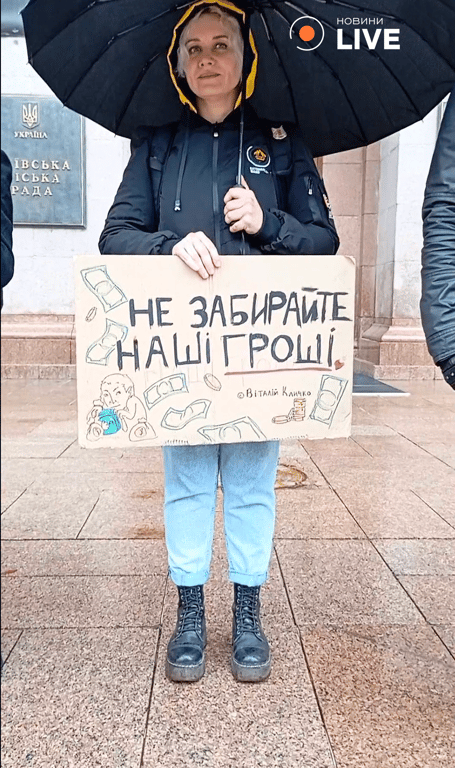 НОВИНИ
LIVE
УКРАЇНА
ЇВСЬКА
ІСЬКА
РАДА
НЕ ЗАБИРАЙТЕ
НАШІ ГРОШІ
©Віталій Кличко